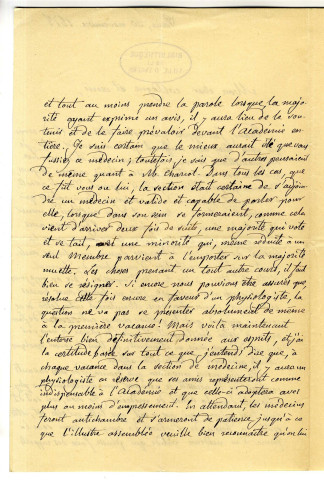 et tout au moins prendre la parole lorsque la majo-
rité ayant exprimé un avis, il y aura lieu de le sou-
tenir et de le faire prévaloir devant l'Académie en-
tière. Je suis certain que le mieux aurait été que vous
fussiez ce médecin; toutefois, je sais que d'autres pensaient
de même quant à Mr Charcot. Dans tous les cas, que
ce fût vous ou lui, la section était certaine de s'adjoin-
dre un médecin et valide et capable de parler pour
elle, lorsque dans son sein se formeraient, comme cela
vient d'arriver deux fois de suite, une majorité qui vote
et se tait, et une minorité qui, même réduite à un
seul Membre parvient à l'emporter sur la majorité
muette. Les choses prenant un tout autre cours, il faut
bien se résigner. Si encore nous pouvions être assurés que,
résolue cette fois encore en faveur d'un physiologiste, la
question ne va pas se présenter absolument de même
à la première vacance! Mais voilà maintenant
l'entorse bien définitivement donnée aux esprits, et j'ai
la certitude basée sur tout ce que j'entends dire que, à
chaque vacance dans la section de médecine, il y aura un
physiologiste en réserve que ses amis représenteront comme
indispensable à l'Académie et que celle-ci adoptera avec
plus ou moins d'empressement. En attendant, les médecins
feront antichambre et s'armeront de patience jusqu'à ce
que l'illustre assemblée veuille bien reconnaître qu'en lui